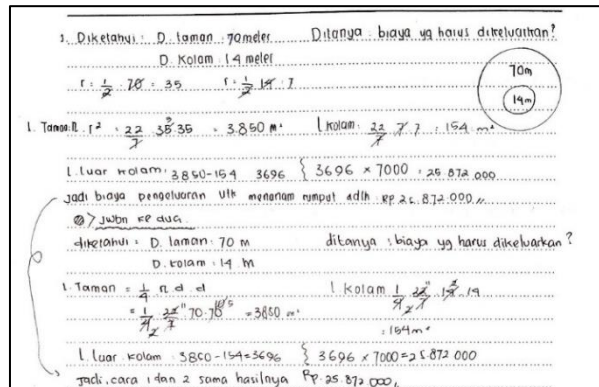 1. Diketahui : D. taman : 70 meter Ditanya : biaya yg harus dikeluarkan?
D. kolam : 14 meter
r = 1/2 . 70 = 35 r = 1/2 . 14 . 7
70m
14m
L. Taman π. r² = 22/7 35.35 = 3.850 m² L kolam : 22/7 7 7 : 154 m²
L. luar kolam : 3850-154 3696 } 3696 x 7000 = 25.872 000
Jadi biaya pengeluaran utk menanam rumput adlh Rp 25.872.000,,
> Jwbn ke dua.
diketahui = D. taman : 70 m ditanya : biaya yg harus dikeluarkan ?
D. kolam = 14 m
L. Taman = 1/4 π. d. d L kolam 1/4 22/7 14.14
= 1/4 22/7 70.70 = 3850 m²
: 154 m²
L. luar kolam : 3850-154=3696 } 3696 x 7000 = 25.872 000
Jadi, cara 1 dan 2 sama hasilnya Rp. 25.872 000,